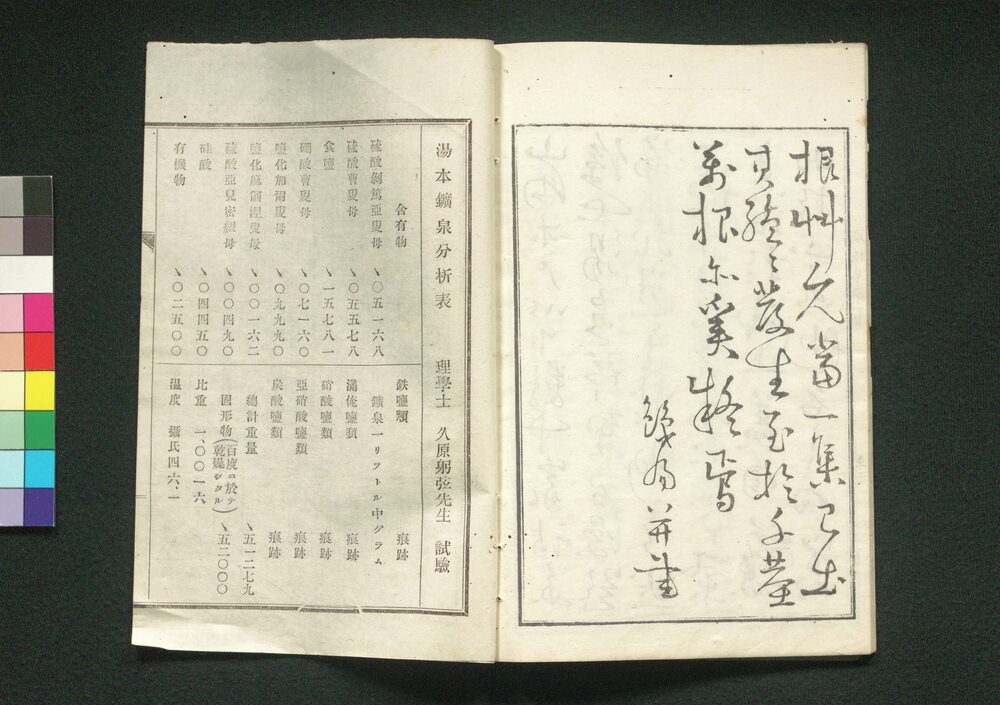 根艸兄當一集已出
其發生至於千莖
萬根亦奚疑焉
并書
湯本鑛泉分析表　理學士　久原躬弦先生　試驗
含有物　鑛泉一リツトル中グラム
硫酸剝篤亞叟母　、〇五一六八
硫酸曹叟母　、〇五五七八
食鹽　、一五七八一
硼酸曹叟母　、〇七一六〇
鹽化加爾叟母　、〇九九九〇
鹽化麻倔涅叟母　、〇〇一六二
硫酸亞兒密紐母　、〇〇四九〇
硅酸　、〇四四五〇
有機物　、〇二五〇〇
鉄鹽類　痕跡
滿俺鹽類　痕跡
硝酸鹽類　痕跡
亞硝酸鹽類　痕跡
炭酸鹽類　痕跡
總計重量　、五一二七九
固形物（百度ニ於テ乾燥シタル）　、五二〇〇〇
比重　一、〇〇一六
温度　攝氏四六、一